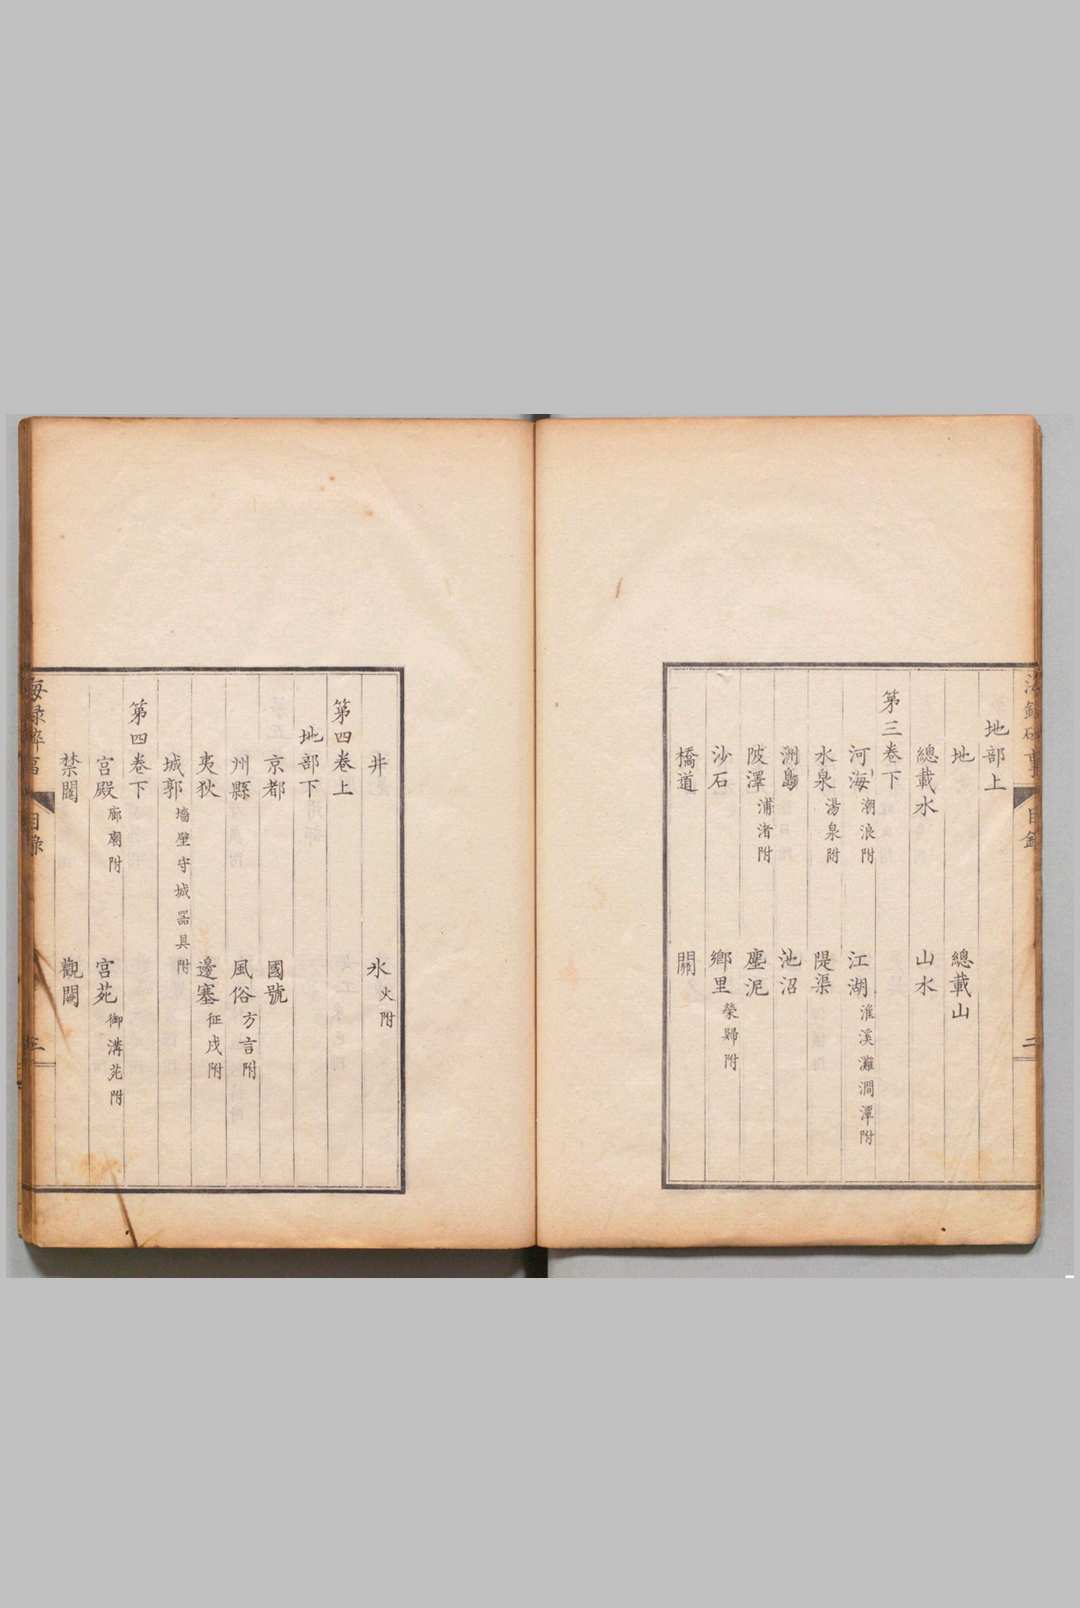 海錄碎事
目錄
二
地部上
地　總載山
總載水　山水
第三卷下
河海潮浪附　江湖淮溪灘澗潭附
水泉湯泉附　隄渠
洲島　池沼
陂澤浦渚附　塵泥
沙石　鄉里榮歸附
橋道　關
井　氷火附
第四卷上
地部下
京都　國號
州縣　風俗方言附
夷狄　邊塞征戍附
城郭墻壁守城器具附
第四卷下
宮殿廊廟附　宮苑御溝苑附
禁闥　觀闕
海錄碎事
目錄
三